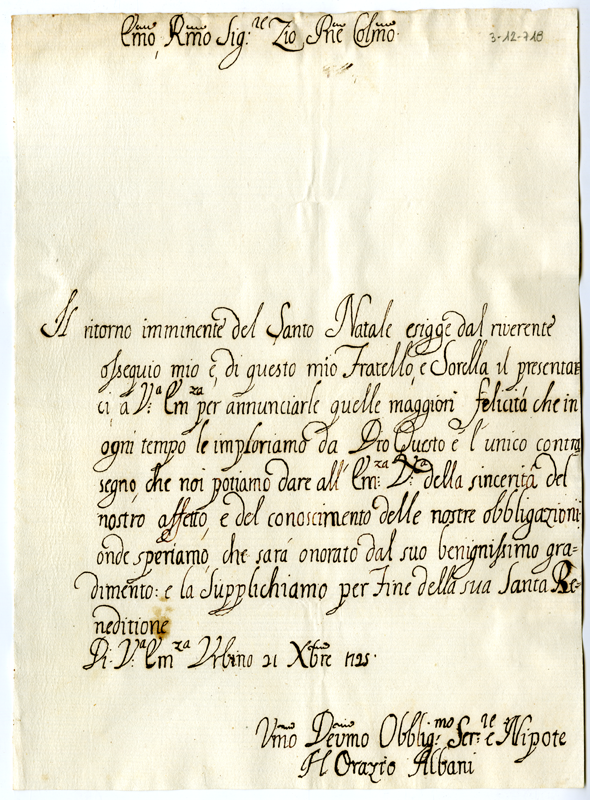 Emo, Rmo Sig:re Zio Pne Colmo.
3-12-718
Il ritorno imminente del Santo Natale esigge dal riverente
ossequio mio e, di questo mio Fratello, e Sorella il presentar
ci à V:a Em:za per annunciarle quelle maggiori felicità che in
ogni tempo le imploriamo da Dio Questo è l'unico contra
segno, che noi potiamo dare all' Em:za V:a della sincerità del
nostro affetto, e del conoscimento delle nostre obbligazioni
onde speriamo, che sarà onorato dal suo benignissimo gra-
dimento: e la Supplichiamo per Fine della sua Santa Be-
neditione
Di V:a Em:za Urbino 21 Xbre 1725.
Umo Devmo Obblig:mo Ser:re e Nipote
H Orazio Albani